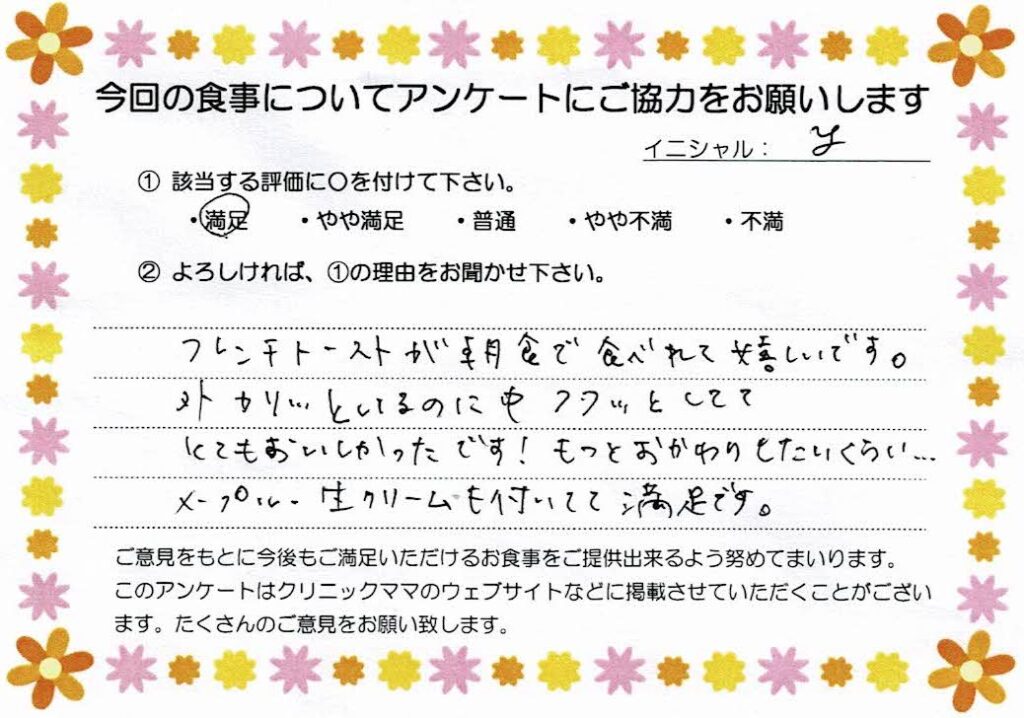 今回の食事についてアンケートにご協力をお願いします
イニシャル： y
① 該当する評価に〇を付けて下さい。
・満足 ・やや満足 ・普通 ・やや不満 ・不満
② よろしければ、①の理由をお聞かせ下さい。
フレンチトーストが朝食で食べれて嬉しいです。
外カリッとしてるのに中フワッとしてて
とてもおいしかったです！もっとおかわりしたいくらい…
メープル・生クリームも付いてて満足です。
ご意見をもとに今後もご満足いただけるお食事をご提供出来るよう努めてまいります。
このアンケートはクリニックママのウェブサイトなどに掲載させていただくことがござい
ます。たくさんのご意見をお願い致します。